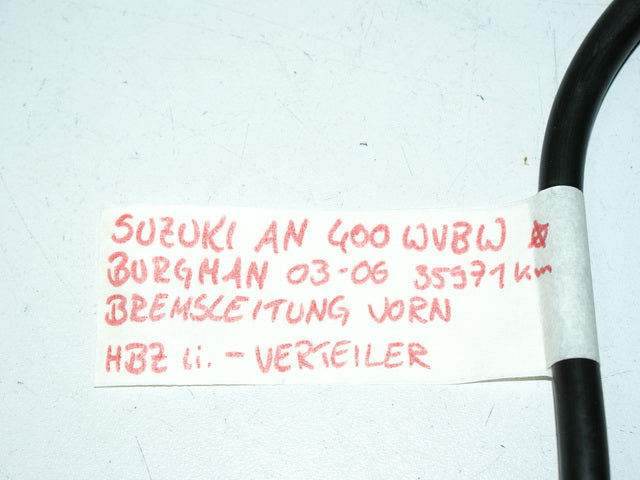 SUZUKI AN 400 WVBW
BURGMAN 03-06 35971 km
BREMSLEITUNG VORN
HBZ li. - VERTEILER